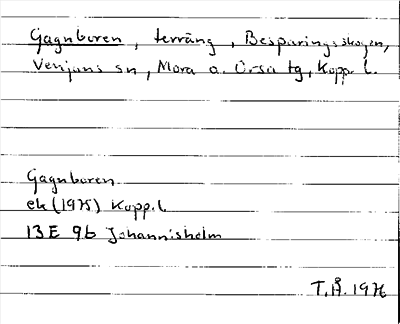 Gagnboren, terräng, Besparingsskogen,
Venjans sn, Mora o. Orsa tg, Kopp. l.
Gagnboren
ek (1975) Kopp. l.
13E 9b Johannisholm
T.Å. 1976